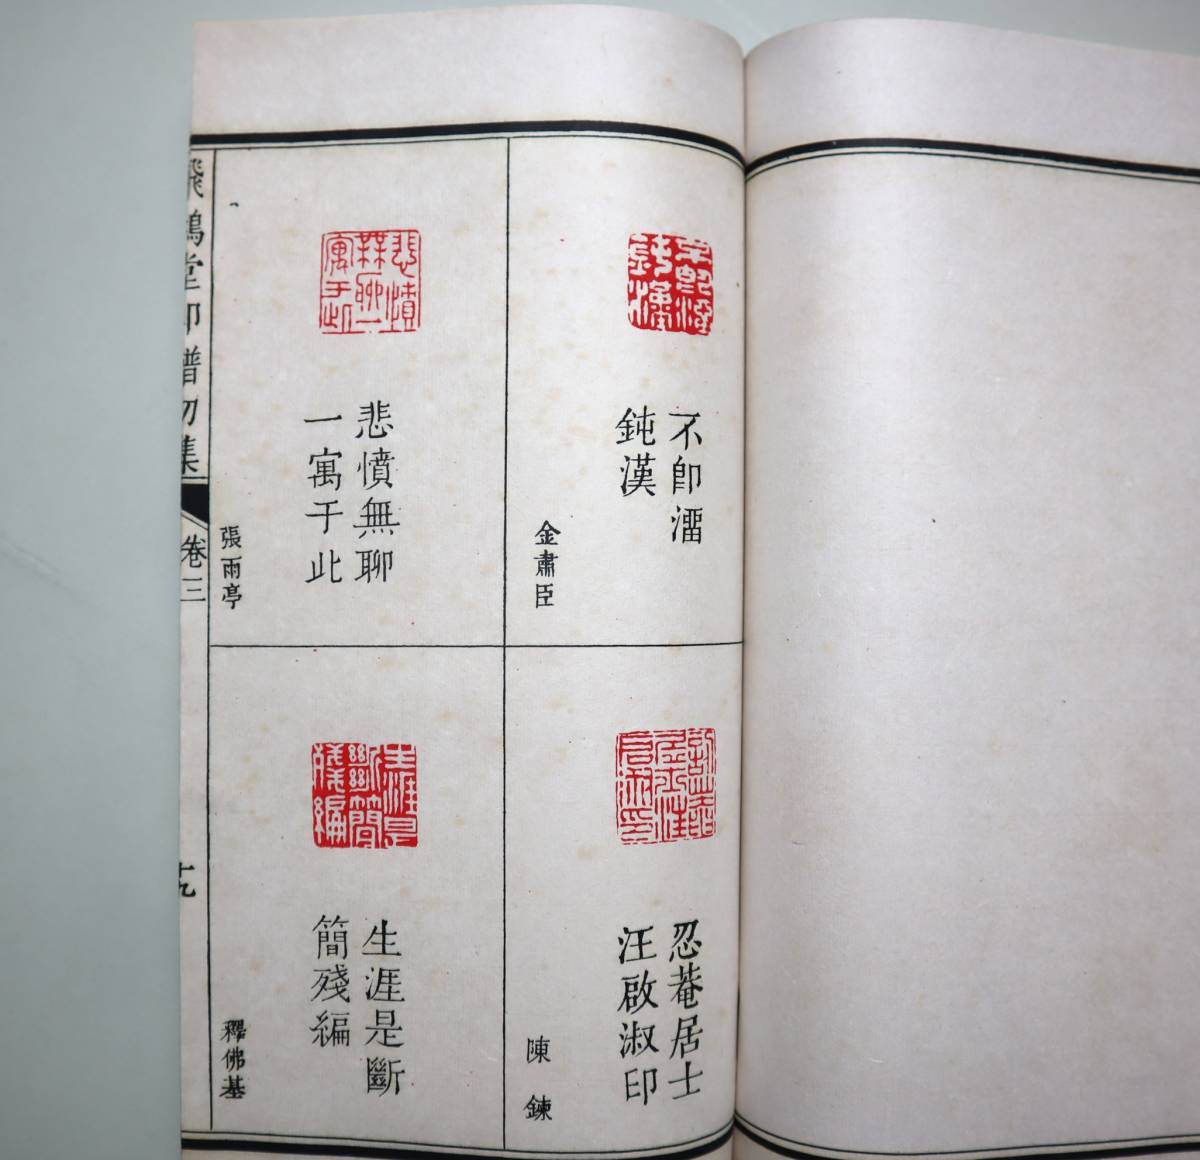 不卽澑
鈍漢
金肅臣
忍菴居士
汪啟淑印
陳鍊
悲憤無聊
一寓于此
張雨亭
生涯是斷
簡殘編
釋佛基
飛鴻堂印譜初集
卷三
十九